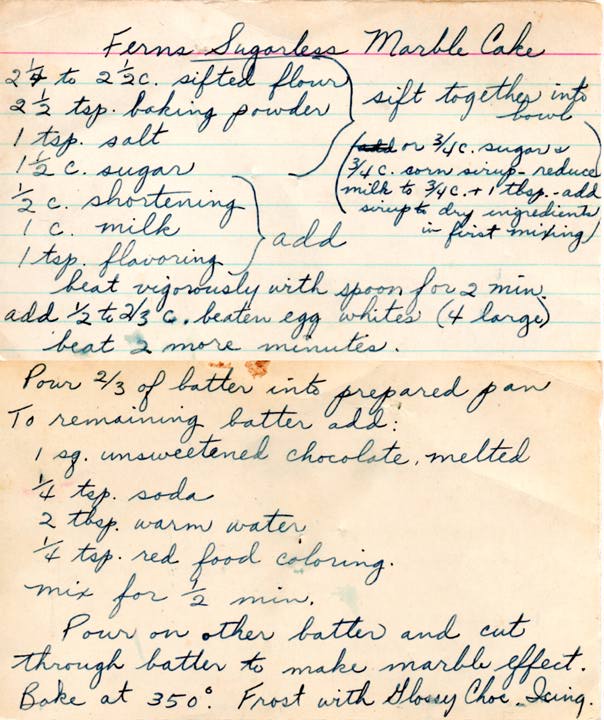 Ferns Sugarless Marble Cake
2 1/4 to 2 1/2 c. sifted flour
2 1/2 tsp. baking powder
1 tsp. salt
1 1/2 c. sugar
sift together into
bowl
(add or 3/4 c. sugar &
3/4 c. corn sirup - reduce
milk to 3/4 c. + 1 tbsp. - add
sirup to dry ingredients
in first mixing)
1/2 c. shortening
1 c. milk
1 tsp. flavoring
add
beat vigorously with spoon for 2 min.
add 1/2 to 2/3 c. beaten egg whites (4 large)
beat 2 more minutes.
Pour 2/3 of batter into prepared pan
To remaining batter add:
1 sq. unsweetened chocolate, melted
1/4 tsp. soda
2 tbsp. warm water
1/4 tsp. red food coloring.
mix for 1/2 min.
Pour on other batter and cut
through batter to make marble effect.
Bake at 350°. Frost with Glossy Choc. Icing.